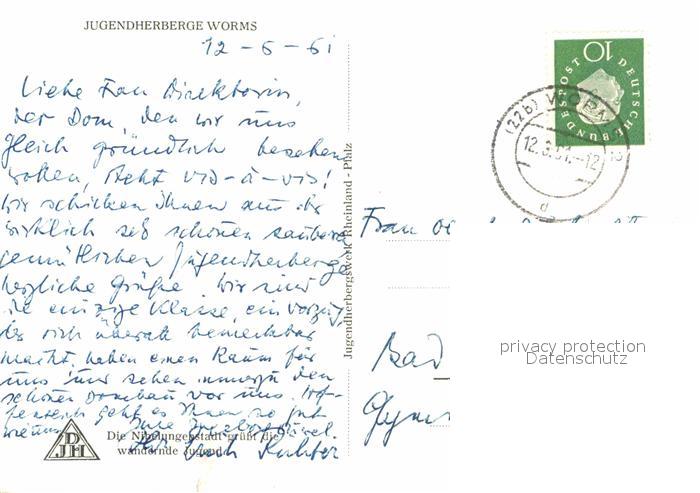 JUGENDHERBERGE WORMS
12-6-61
Liebe Frau Direktorin,
der Dom, den wir uns
gleich gründlich besehen
wollen, steht vis-à-vis!
Wir schicken Ihnen aus der
wirklich sehr schönen saubere
gemütlichen Jugendherberge
herzliche Grüße. Wir sind
die einzige Klasse, ein Vorzug
der sich überall bemerkbar
macht, haben einen Raum für
uns und sehen immerzu den
schönen Dombau vor uns. Hof-
fentlich geht es Ihnen so gut
wie uns. Ihre
Die Nibelungenstadt grüßt die
wandernde Jugend
DJH
Jugendherbergswerk Rheinland - Pfalz
DEUTSCHE BUNDESPOST
10
(22b) WORMS
12.6.61.-12
d
Frau
Bad
Gymn
privacy protection
Datenschutz